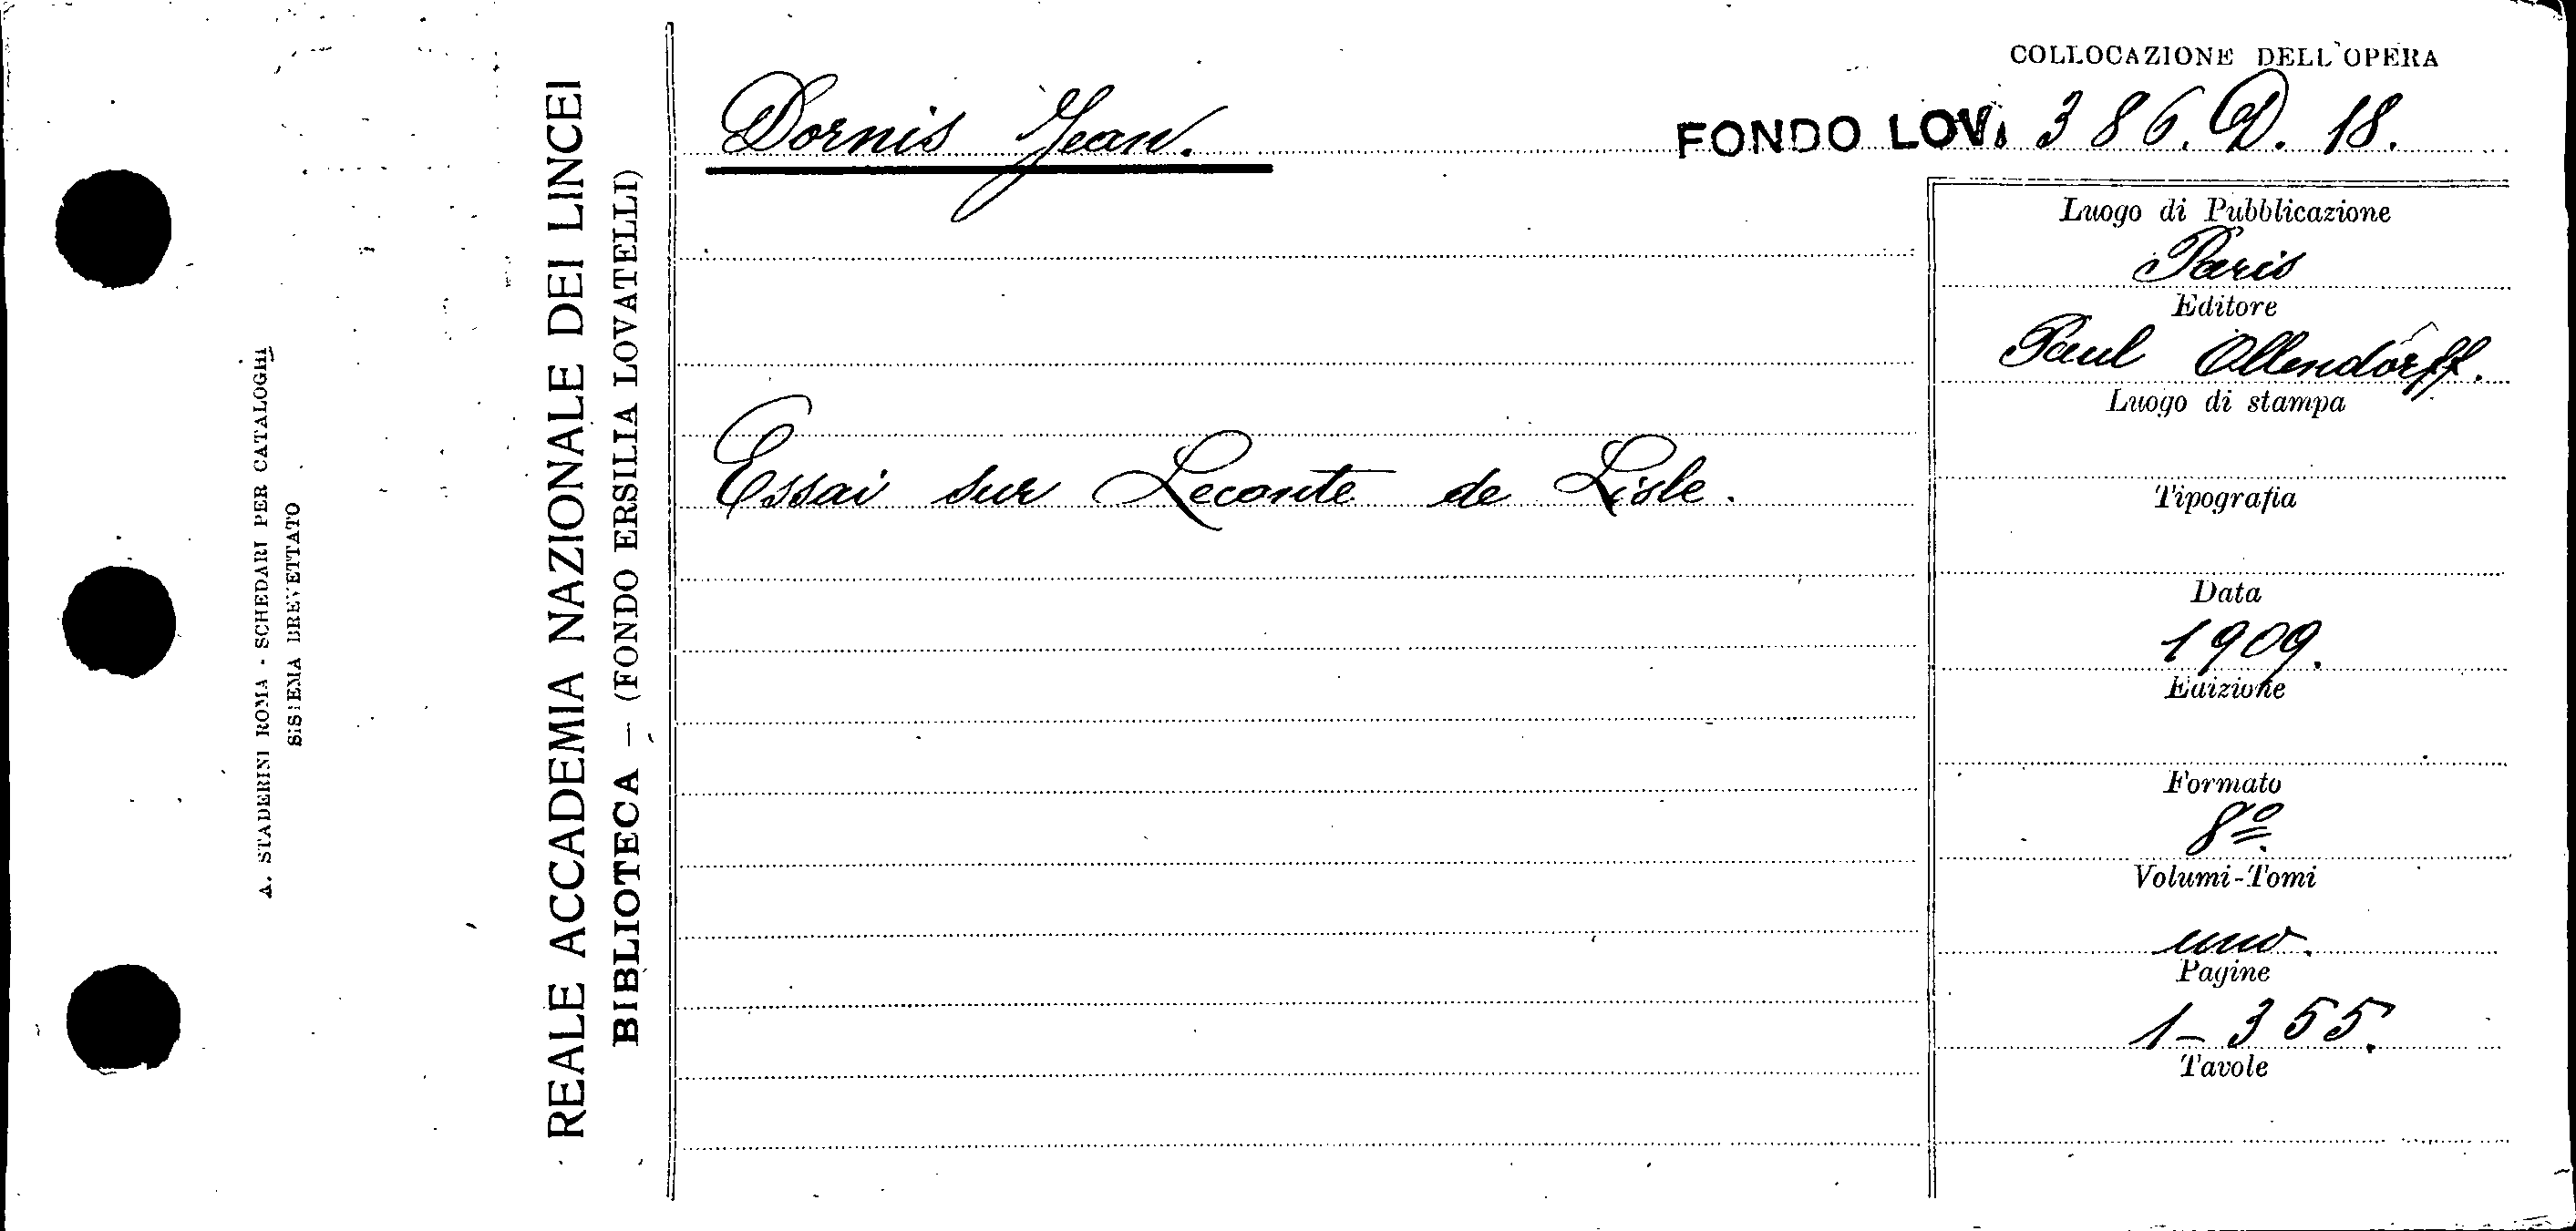 COLLOCAZIONE DELL'OPERA
Dornis Jean.
FONDO LOV. 386. D. 18.
Essai sur Leconte de Lisle.
Luogo di Pubblicazione
Paris
Editore
Paul Ollendorff.
Luogo di stampa
Tipografia
Data
1909.
Edizione
Formato
8º.
Volumi-Tomi
uno.
Pagine
1-355.
Tavole
REALE ACCADEMIA NAZIONALE DEI LINCEI
BIBLIOTECA — (FONDO ERSILIA LOVATELLI)
A. STADERINI ROMA - SCHEDARI PER CATALOGHI
SISTEMA BREVETTATO